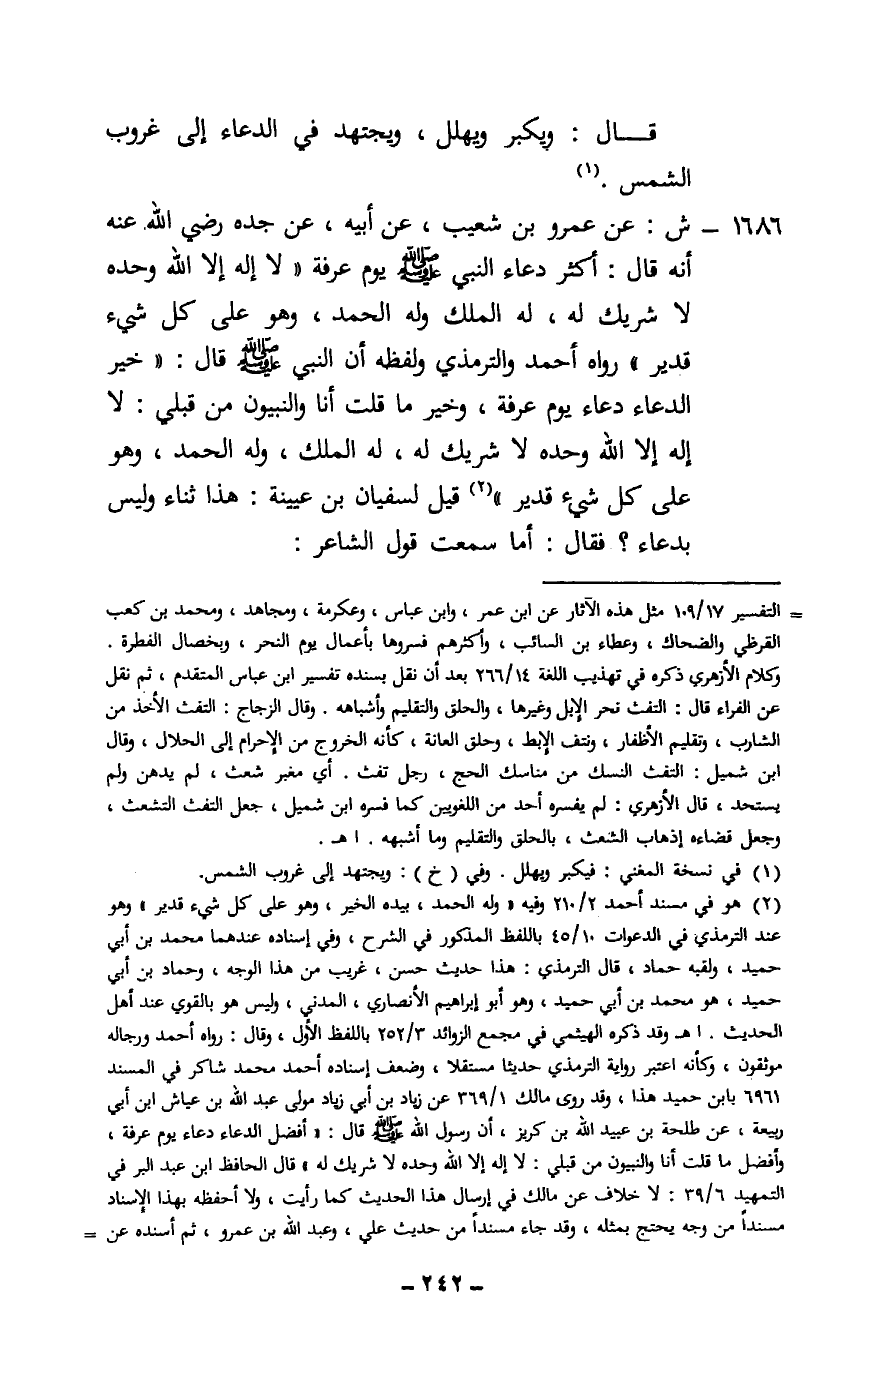 قـــال : ويكبر ويهلل ، ويجتهد في الدعاء إلى غروب
الشمس .(١)
١٦٨٦ – ش : عن عمرو بن شعيب ، عن أبيه ، عن جده رضي الله عنه
أنه قال : أكثر دعاء النبي ﷺ يوم عرفة « لا إله إلا الله وحده
لا شريك له ، له الملك وله الحمد ، وهو على كل شيء
قدير » رواه أحمد والترمذي ولفظه أن النبي ﷺ قال : « خير
الدعاء دعاء يوم عرفة ، وخير ما قلت أنا والنبيون من قبلي : لا
إله إلا الله وحده لا شريك له ، له الملك ، وله الحمد ، وهو
على كل شيء قدير »(٢) قيل لسفيان بن عيينة : هذا ثناء وليس
بدعاء ؟ فقال : أما سمعت قول الشاعر :
= التفسير ١٠٩/١٧ مثل هذه الآثار عن ابن عمر ، وابن عباس ، وعكرمة ، ومجاهد ، ومحمد بن كعب
القرظي والضحاك ، وعطاء بن السائب ، وأكثرهم فسروها بأعمال يوم النحر ، وبخصال الفطرة .
وكلام الأزهري ذكره في تهذيب اللغة ٢٦٦/١٤ بعد أن نقل بسنده تفسير ابن عباس المتقدم ، ثم نقل
عن الفراء قال : التفث نحر الإبل وغيرها ، والحلق والتقليم وأشباهه . وقال الزجاج : التفث الأخذ من
الشارب ، وتقليم الأظفار ، ونتف الإبط ، وحلق العانة ، كأنه الخروج من الإحرام إلى الحلال ، وقال
ابن شميل : التفث النسك من مناسك الحج ، رجل تفث . أي مغبر شعث ، لم يدهن ولم
يستحد ، قال الأزهري : لم يفسره أحد من اللغويين كما فسره ابن شميل ، جعل التفث التشعث ،
وجعل قضاءه إذهاب الشعث ، بالحلق والتقليم وما أشبهه . ا هـ .
(١) في نسخة المغني : فيكبر ويهلل . وفي ( خ ) : ويجتهد إلى غروب الشمس.
(٢) هو في مسند أحمد ٢١٠/٢ وفيه « وله الحمد ، بيده الخير ، وهو على كل شيء قدير » وهو
عند الترمذي في الدعوات ٤٥/١٠ باللفظ المذكور في الشرح ، وفي إسناده عندهما محمد بن أبي
حميد ، ولقبه حماد ، قال الترمذي : هذا حديث حسن ، غريب من هذا الوجه ، وحماد بن أبي
حميد ، هو محمد بن أبي حميد ، وهو أبو إبراهيم الأنصاري ، المدني ، وليس هو بالقوي عند أهل
الحديث . ا هـ وقد ذكره الهيثمي في مجمع الزوائد ٢٥٢/٣ باللفظ الأول ، وقال : رواه أحمد ورجاله
موثقون ، وكأنه اعتبر رواية الترمذي حديثا مستقلا ، وضعف إسناده أحمد محمد شاكر في المسند
٦٩٦١ بابن حميد هذا ، وقد روى مالك ٣٦٩/١ عن زياد بن أبي زياد مولى عبد الله بن عياش ابن أبي
ربيعة ، عن طلحة بن عبيد الله بن كريز ، أن رسول الله ﷺ قال : « أفضل الدعاء دعاء يوم عرفة ،
وأفضل ما قلت أنا والنبيون من قبلي : لا إله إلا الله وحده لا شريك له » قال الحافظ ابن عبد البر في
التمهيد ٣٩/٦ : لا خلاف عن مالك في إرسال هذا الحديث كما رأيت ، ولا أحفظه بهذا الإسناد
مسنداً من وجه يحتج بمثله ، وقد جاء مسنداً من حديث علي ، وعبد الله بن عمرو ، ثم أسنده عن =
– ٢٤٢ –